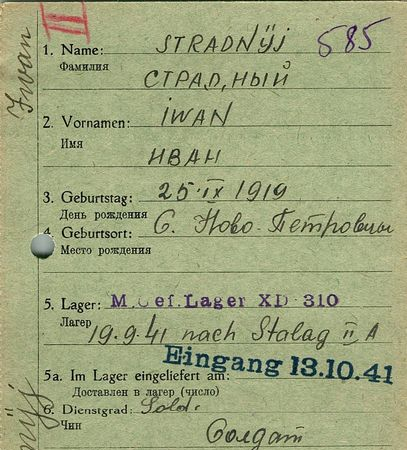 II
Iwan
1. Name: STRADNYJ 585
Фамилия СТРАДНЫЙ
2. Vornamen: IWAN
Имя
ИВАН
3. Geburtstag: 25 IX 1919
День рождения
4. Geburtsort: С. Ново-Петровцы
Место рождения
5. Lager: M. Gef. Lager XD-310
Лагерь 19.9.41 nach Stalag II A
Eingang 13.10.41
5a. Im Lager eingeliefert am:
Доставлен в лагерь (число)
6. Dienstgrad: Sold.
Чин Солдат